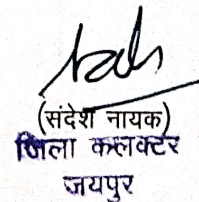 (संदेश नायक)
जिला कलक्टर
जयपुर